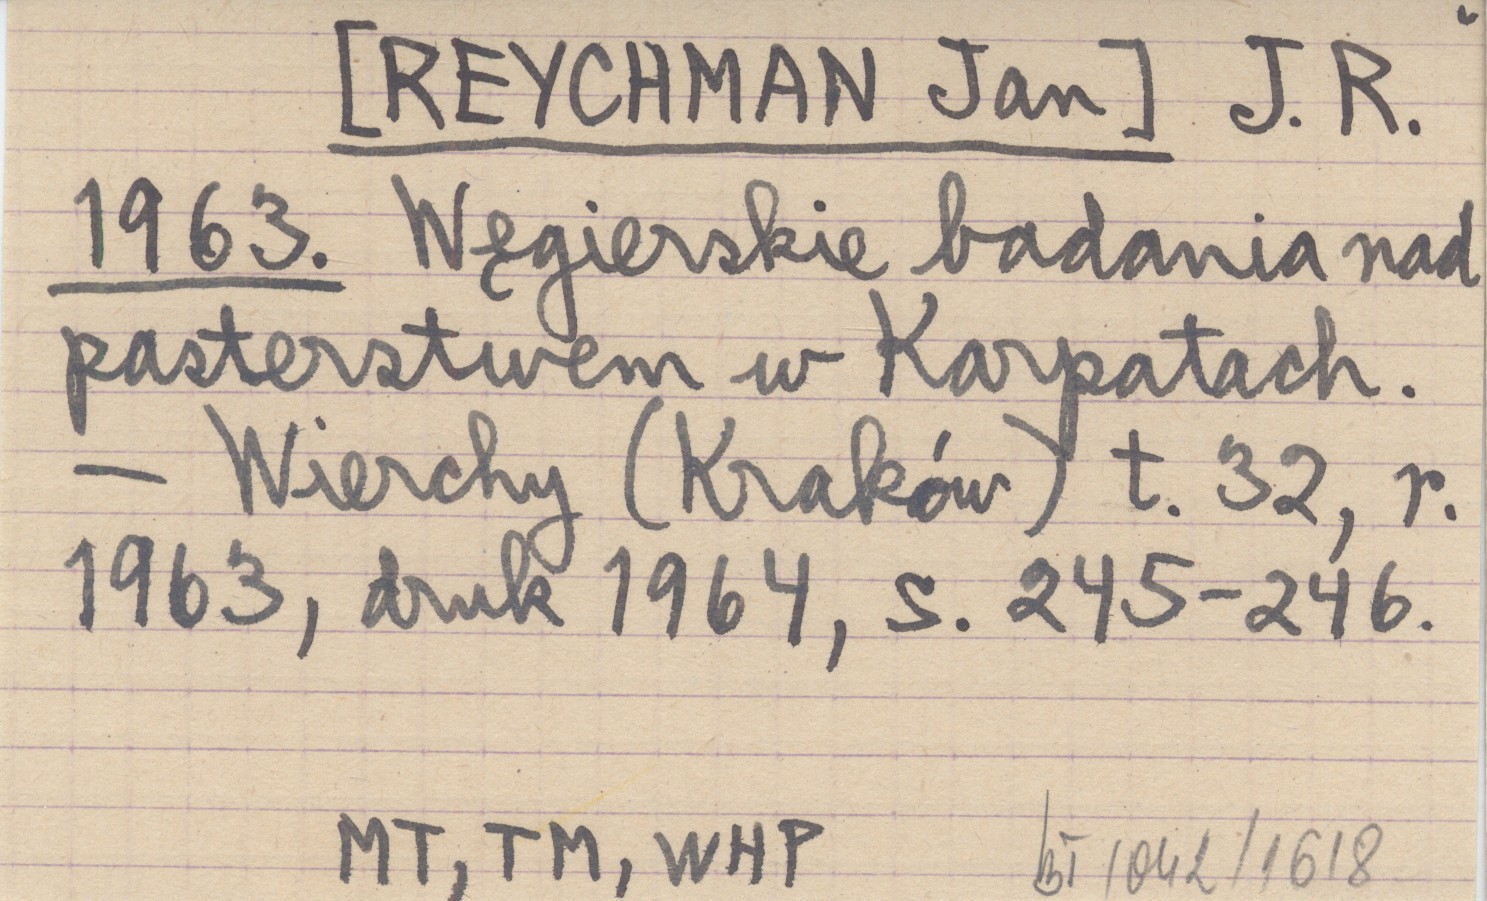 [REYCHMAN Jan] J. R.
1963. Węgierskie badania nad
pasterstwem w Karpatach.
— Wierchy (Kraków) t. 32, r.
1963, druk 1964, s. 245-246.
MT, TM, WHP
1042/1618